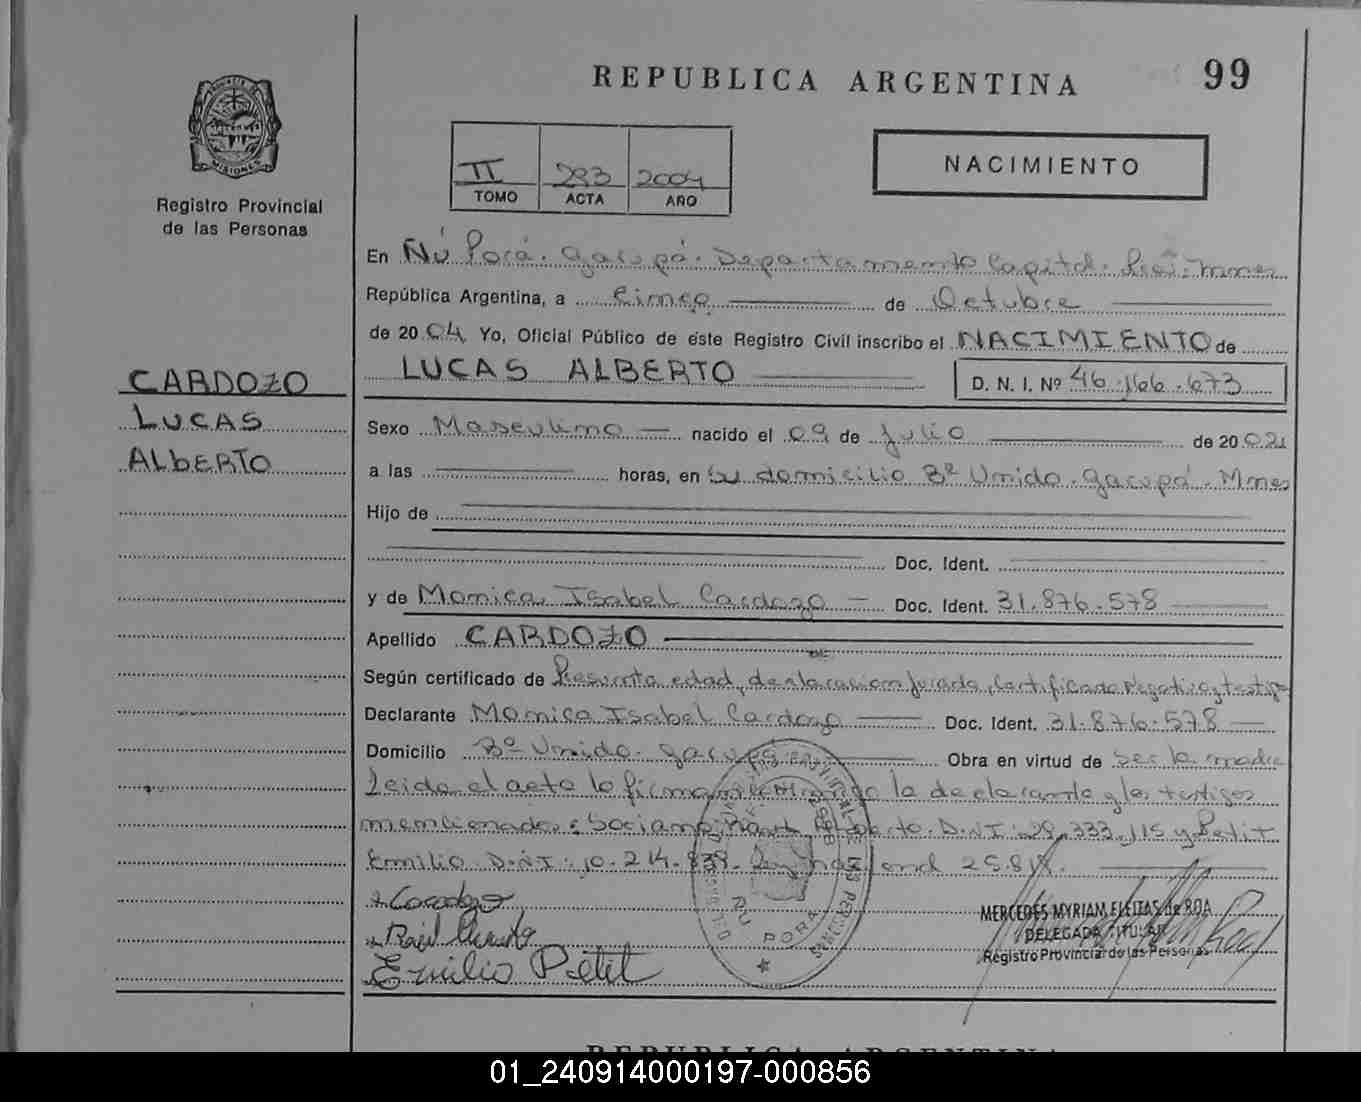 REPUBLICA ARGENTINA
99
PROVINCIA DE MISIONES
Registro Provincial
de las Personas
II 293 2004
TOMO ACTA AÑO
NACIMIENTO
En Ñú Porá. Garupá. Departamento Capital. Mnes
República Argentina, a Cinco de Octubre
de 2004, Yo, Oficial Público de este Registro Civil inscribo el NACIMIENTO de
LUCAS ALBERTO D. N. I. Nº 46.166.673
CARDOZO
LUCAS
ALBERTO
Sexo Masculino nacido el 09 de Julio de 20
a las horas, en Su domicilio Bº Unido. Garupá. Mnes
Hijo de
Doc. Ident.
y de Monica Isabel Cardozo Doc. Ident. 31.876.578
Apellido CARDOZO
Según certificado de Presunta edad, declaracion Jurada, Certificado Negativo y testigo
Declarante Monica Isabel Cardozo Doc. Ident. 31.876.578
Domicilio Bº Unido. Garupá Obra en virtud de Ser la madre
Leida el acta lo firman conmigo la declarante y los testigos
mencionados: D.N.I: 29.333.115 y Petit
Emilio D.N.I: 10.214.839. 25.818.
Cardozo
Raúl
Emilio Petit
ÑU PORA
MERCEDES MYRIAM FLEITAS de ROA
DELEGADA TITULAR
Registro Provincial de las Personas
REPUBLICA ARGENTINA
01_240914000197-000856